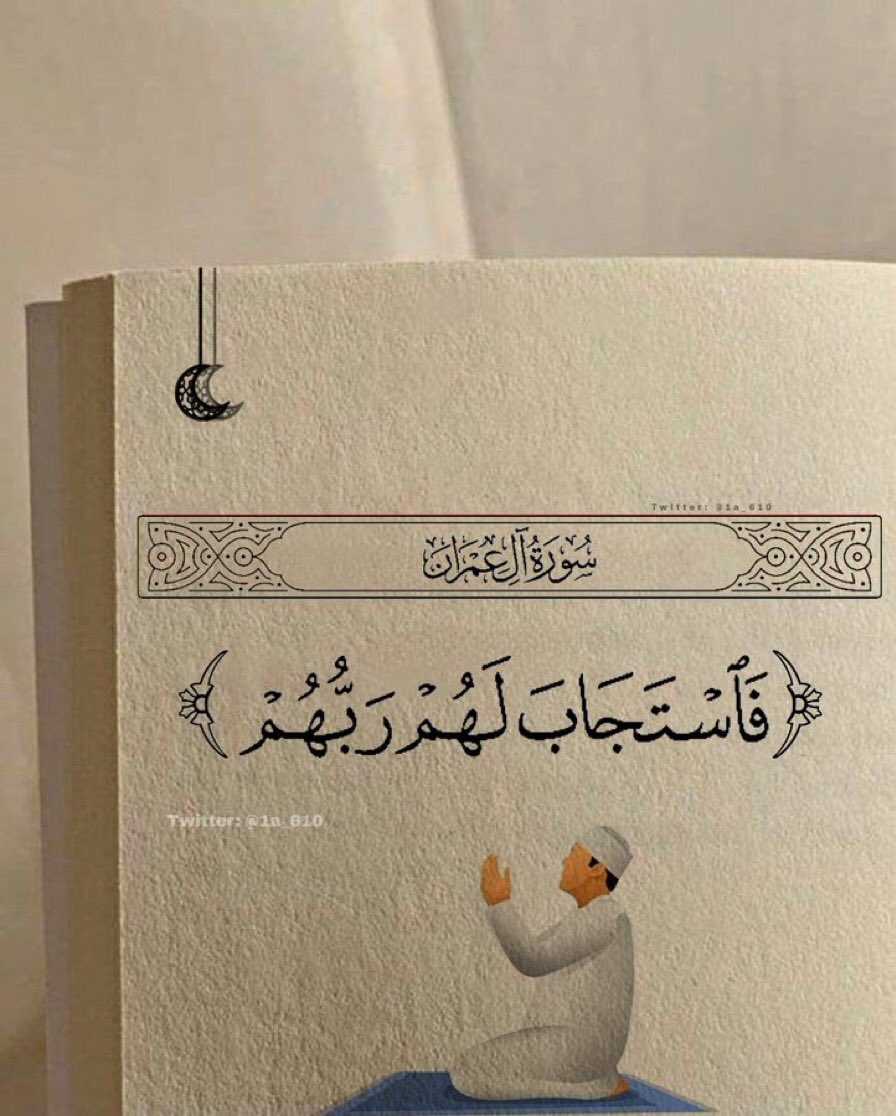 Twitter: @1a_010
سُورَةُ آلِ عِمْرَانَ
﴿فَٱسْتَجَابَ لَهُمْ رَبُّهُمْ﴾
Twitter: @1a_010